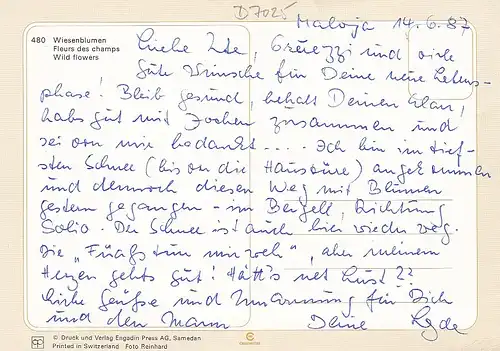 D7025
Maloja 14.6.87
480 Wiesenblumen
Fleurs des champs
Wild flowers
Liebe Ute, Grüezzi und viele
gute Wünsche für Deine neue Lebens-
phase! Bleib gesund, behalt Deinen Elan,
habs gut mit Jochen zusammen und
sei von mir bedankt.... Ich bin im tief-
sten Schnee (bis an die Haustüre) angekommen
und dennoch diesen Weg mit Blumen
gestern gegangen - im Bergell, Richtung
Solio. Der Schnee ist auch hier wieder weg.
Die "Füaß tun mir weh", aber meinem
Herzen gehts gut! Hätt's net Lust??
Liebe Grüße und Umarmung für Dich
und den Mann Deine
© Druck und Verlag Engadin Press AG, Samedan
Printed in Switzerland Foto Reinhard